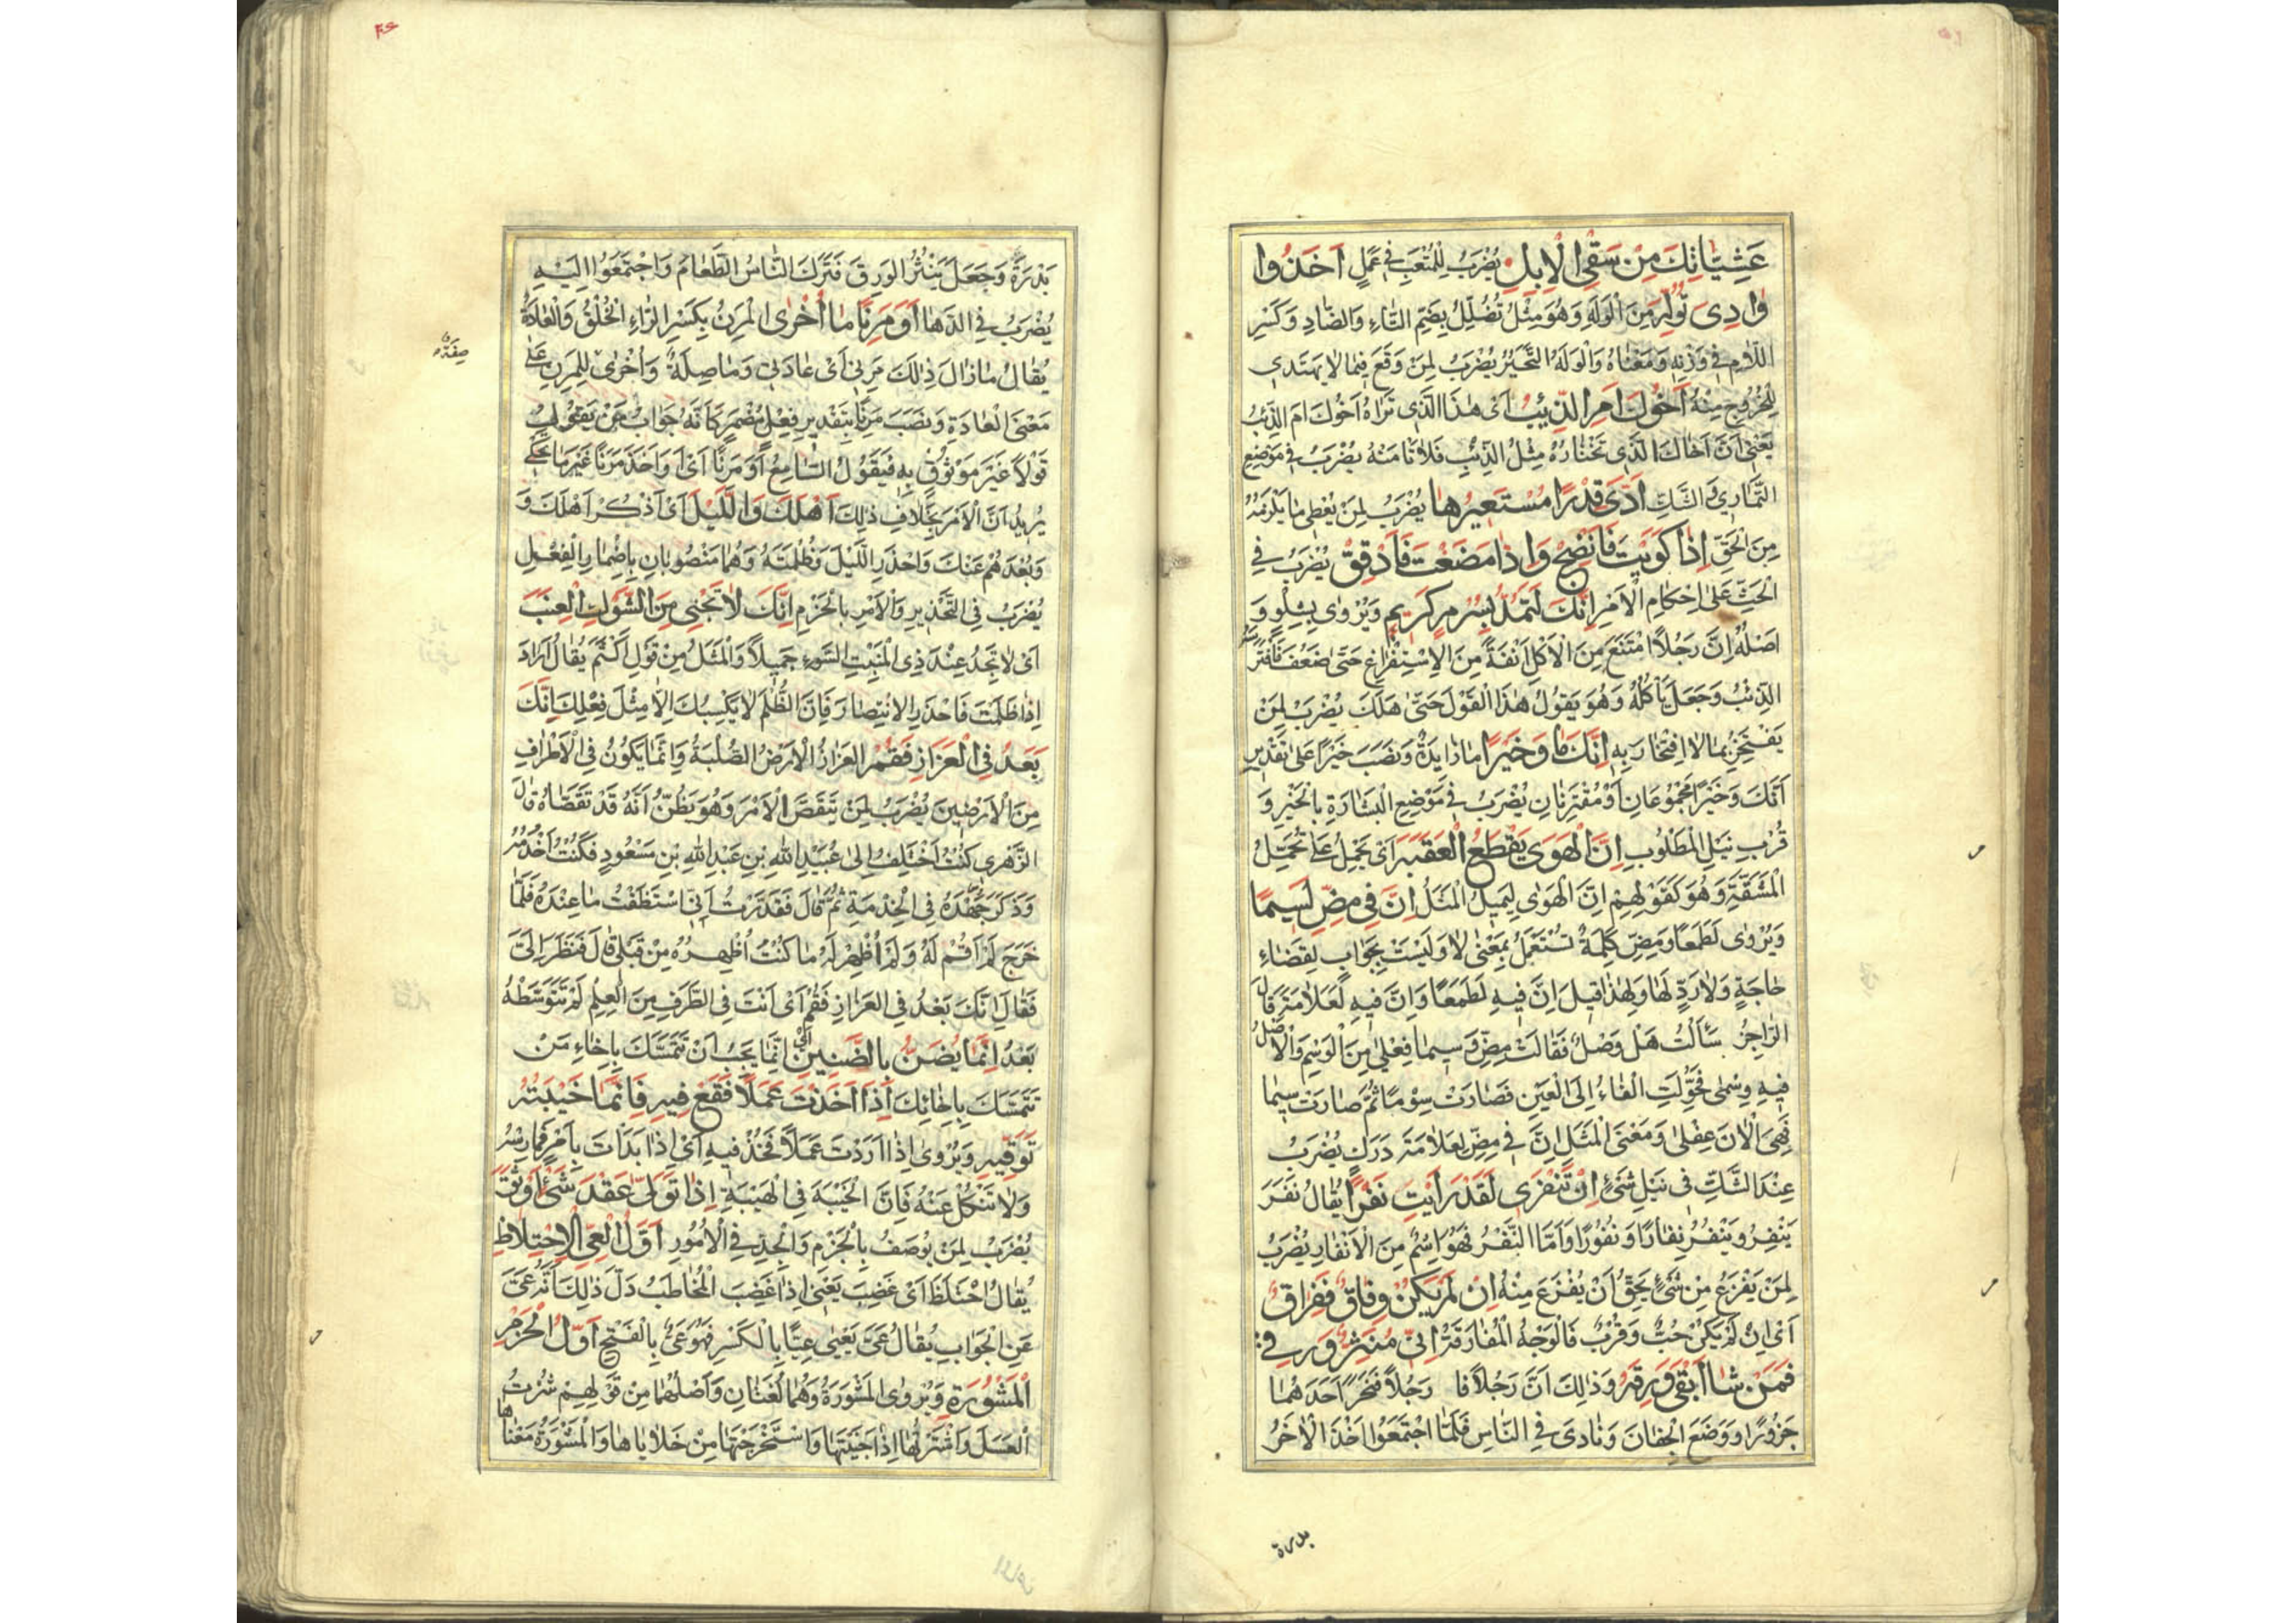 عَشِيَّاتِكَ مِنْ سَقْيِ الْاِبِلِ يُضْرَبُ لِلْمُتْعَبِ فِي عَمَلٍ اَخَذُوا
وَادِىَ تُوُلِّهَ مِنَ الْوَلَهِ وَهُوَ مِثْلُ تُضُلِّلَ بِضَمِّ التَّاءِ وَالضَّادِ وَكَسْرِ
اللَّامِ فِي وَزْنِهِ وَمَعْنَاهُ وَالْوَلَهُ التَّحَيُّرُ يُضْرَبُ لِمَنْ وَقَعَ فِيمَا لَا يَهْتَدِي
لِلْخُرُوجِ مِنْهُ اَخُوكَ اَمِ الذِّئْبُ اَىْ هٰذَا الَّذِى تَرَاهُ اَخُوكَ اَمِ الذِّئْبُ
يَعْنِى اَنَّ اَخَاكَ الَّذِى تَخْتَارُهُ مِثْلُ الذِّئْبِ فَلَا تَأْمَنْهُ يُضْرَبُ فِي مَوْضِعِ
التَّمَارِي وَالشَّكِّ اَدَّىَ قَدْرًا مُسْتَعِيرُهَا يُضْرَبُ لِمَنْ يُعْطِى مَا يَلْزَمُهُ
مِنَ الْحَقِّ اِذَا كَوَيْتَ فَانْضِجْ وَاِذَا مَضَغْتَ فَادْقِقْ يُضْرَبُ فِي
الْحَثِّ عَلَى اِحْكَامِ الْاَمْرِ اِنَّكَ لَتَمُدُّ بِسُرْمٍ كَرِيمٍ وَيُرْوٰى بِشِلْوٍ وَ
اَصْلُهُ اِنَّ رَجُلًا امْتَنَعَ مِنَ الْاَكْلِ اَنَفَةً مِنَ الْاِسْتِفْرَاغِ حَتَّى ضَعُفَ فَافْتَرَسَهُ
الذِّئْبُ وَجَعَلَ يَأْكُلُهُ وَهُوَ يَقُولُ هٰذَا الْقَوْلَ حَتّٰى هَلَكَ يُضْرَبُ لِمَنْ
يَفْتَخِرُ بِمَا لَا اِفْتِخَارَ بِهِ اِنَّكَ مَا وَخَيْرًا مَا زَايِدَةٌ وَنَصَبَ خَيْرًا عَلَى تَقْدِيرِ
اَنَّكَ وَخَيْرًا مَجْمُوعَانِ اَوْ مُقْتَرِنَانِ يُضْرَبُ فِي مَوْضِعِ الْبَشَارَةِ بِالْخَيْرِ وَ
قُرْبِ نَيْلِ الْمَطْلُوبِ اِنَّ الْهَوَى يَقْطَعُ الْعَقَبَةَ اَىْ يَحْمِلُ عَلَى تَحَمُّلِ
الْمَشَقَّةِ وَهُوَ كَقَوْلِهِمْ اِنَّ الْهَوٰى لِيَمِيلُ الْمَثَلُ اِنَّ فِي مِضِّ لَسِيمًا
وَيُرْوٰى لَطَمَعًا وَمِضِّ كَلِمَةٌ تُسْتَعْمَلُ بِمَعْنٰى لَا وَلَيْسَتْ بِجَوَابٍ لِقَضَاءِ
حَاجَةٍ وَلَا رَدٍّ لَهَا وَلِهٰذَا قِيلَ اِنَّ فِيهِ لَطَمَعًا وَاِنَّ فِيهِ لَعَلَامَةً قَالَ
الرَّاجِزُ سَأَلْتُ هَلْ وَصْلٌ فَقَالَتْ مِضِّ وَسِيمَا فِعْلٰى مِنَ الْوَسْمِ وَالْاَصْلُ
فِيهِ وِسْمٰى فَحُوِّلَتِ الْفَاءُ اِلَى الْعَيْنِ فَصَارَتْ سِوْمًا ثُمَّ صَارَتْ سِيمَا
فَهِىَ الْاٰنَ عِفْلٰى وَمَعْنَى الْمَثَلِ اِنَّ فِي مِضِّ لِعَلَامَةَ دَرَكٍ يُضْرَبُ
عِنْدَ الشَّكِّ فِي نَيْلِ شَىْءٍ اِنْ تَنْفِرِى لَقَدْ رَاَيْتِ نَفْرًا يُقَالُ نَفَرَ
يَنْفِرُ وَيَنْفُرُ نِفَارًا وَنُفُورًا وَاَمَّا النَّفْرُ فَهُوَ اِسْمٌ مِنَ الْاِنْفَارِ يُضْرَبُ
لِمَنْ يَفْزَعُ مِنْ شَىْءٍ يَحِقُّ اَنْ يُفْزَعَ مِنْهُ اِنْ لَمْ يَكُنْ وِفَاقٌ فَفِرَاقٌ
اَىْ اِنْ لَمْ يَكُنْ حُبٌّ وَقُرْبٌ فَالْوَجْهُ الْمُفَارَقَةُ اِنِّى مُنْثِرٌ وَرِقِى
فَمَنْ شَا اَبْقَى وَرِقَهُ وَذٰلِكَ اَنَّ رَجُلًا فَا رَجُلًا فَنَحَرَ اَحَدُهُمَا
جَزُورًا وَوَضَعَ الْجِفَانَ وَنَادَى فِي النَّاسِ فَلَمَّا اجْتَمَعُوا اَخَذَ الْاٰخَرُ
بدرة
بَدْرَةً وَجَعَلَ يَنْثُرُ الوَرِقَ فَتَرَكَ النَّاسُ الطَّعَامَ وَاجْتَمَعُوا اِلَيْهِ
يُضْرَبُ فِي الدَّهَاءِ اَوْ مَرِنًا مَا اُخْرٰى الْمَرِنُ بِكَسْرِ الرَّاءِ الْخُلُقُ وَالْعَادَةُ
يُقَالُ مَا زَالَ ذٰلِكَ مَرِنِى اَىْ عَادَتِى وَمَا صِلَةٌ وَاُخْرٰى لِلْمَرِنِ عَلٰى
صفة
مَعْنَى الْعَادَةِ وَنَصَبَ مَرِنًا بِتَقْدِيرِ فِعْلٍ مُضْمَرٍ كَاَنَّهُ جَوَابُ مَنْ يَقُولُ
قَوْلًا غَيْرَ مَوْثُوقٍ بِهِ فَيَقُولُ السَّامِعُ اَوْ مَرِنًا اَىْ اَوَ اَخَذَ مَرِنًا غَيْرَ مَا يَحْكِى
يُرِيدُ اَنَّ الْاَمْرَ بِخِلَافِ ذٰلِكَ اَهْلَكَ وَاللَّيْلَ اَىْ اُذْكُرْ اَهْلَكَ وَ
وَبُعْدَهُمْ عَنْكَ وَاحْذَرِ اللَّيْلَ وَظُلْمَتَهُ وَهُمَا مَنْصُوبَانِ بِاِضْمَارِ الْفِعْلِ
يُضْرَبُ فِي التَّحْذِيرِ وَالْاَمْرِ بِالْحَزْمِ اِنَّكَ لَا تَجْنِى مِنَ الشَّوْكِ الْعِنَبَ
اَىْ لَا تَجِدُ عِنْدَ ذِى الْمَنْبِتِ السَّوْءِ جَمِيلًا وَالْمَثَلُ مِنْ قَوْلِ اَكْثَمَ يُقَالُ اَرَادَ
اِذَا ظَلَمْتَ فَاحْذَرِ الْاِنْتِصَارَ فَاِنَّ الظُّلْمَ لَا يَكْسِبُكَ اِلَّا مِثْلَ فِعْلِكَ اِنَّكَ
بَعْدُ فِي الْعَزَازِ فَقُمْ العَزَازُ الْاَرْضُ الصُّلْبَةُ وَاِنَّمَا يَكُونُ فِي الْاَطْرَافِ
مِنَ الْاَرَضِينَ يُضْرَبُ لِمَنْ يَتَقَصَّى الْاَمْرَ وَهُوَ يَظُنُّ اَنَّهُ قَدْ تَقَصَّاهُ قَالَ
الزُّهْرِى كُنْتُ اَخْتَلِفُ اِلٰى عُبَيْدِ اللّٰهِ بْنِ عَبْدِ اللّٰهِ بْنِ مَسْعُودٍ فَكُنْتُ اَخْدُمُهُ
وَذَكَرَ جُهْدَهُ فِي الْخِدْمَةِ ثُمَّ قَالَ فَقَدَّرْتُ اَنِّى اسْتَنْظَفْتُ مَا عِنْدَهُ فَلَمَّا
خَرَجَ لَمْ اَقُمْ لَهُ وَلَمْ اُظْهِرْ لَهُ مَا كُنْتُ اُظْهِرُهُ مِنْ قَبْلُ قَالَ فَنَظَرَ اِلَىَّ
فَقَالَ اِنَّكَ بَعْدُ فِي العَزَازِ فَقُمْ اَىْ اَنْتَ فِي الطَّرَفِ مِنَ الْعِلْمِ لَمْ تَتَوَسَّطْهُ
بَعْدُ اِنَّمَا يُضَنُّ بِالضَّنِينِ اَىْ اِنَّمَا يَجِبُ اَنْ تَتَمَسَّكَ بِاِخَاءِ مَنْ
تَمَسَّكَ بِاِخَائِكَ اِذَا اَخَذْتَ عَمَلًا فَقَعْ فِيهِ فَاِنَّمَا خَيْبَتُهُ
تَوَقِّيهِ وَيُرْوٰى اِذَا اَرَدْتَ عَمَلًا فَخُذْ فِيهِ اَىْ اِذَا بَدَأْتَ بِاَمْرٍ فَمَارِسْهُ
وَلَا تَنْكُلْ عَنْهُ فَاِنَّ الْخَيْبَةَ فِي الْهَيْبَةِ اِذَا تَوَلَّى عَقْدَ شَىْءٍ اَوْثَقَ
يُضْرَبُ لِمَنْ يُوصَفُ بِالْحَزْمِ وَالْجِدِّ فِي الْاُمُورِ اَوَّلُ الْعِىِّ الْاِحْتِلَاطُ
يُقَالُ احْتَلَطَ اَىْ غَضِبَ يَعْنِى اِذَا غَضِبَ الْمُخَاطَبُ دَلَّ ذٰلِكَ اَنَّهُ عَىَّ
عَنِ الْجَوَابِ يُقَالُ عَىَّ يَعْيٰى عِيًّا بِالْكَسْرِ فَهُوَ عَىٌّ بِالْفَتْحِ اَوَّلُ الْحَزْمِ
الْمَشُورَةِ وَيُرْوٰى الْمَشْوَرَةُ وَهُمَا لُغَتَانِ وَاَصْلُهُمَا مِنْ قَوْلِهِمْ شُرْتُ
الْعَسَلَ وَاشْتَرْتُهَا اِذَا جَنَيْتَهَا وَاسْتَخْرَجْتَهَا مِنْ خَلَايَاهَا وَالْمَشْوَرَةُ مَعْنَاهَا